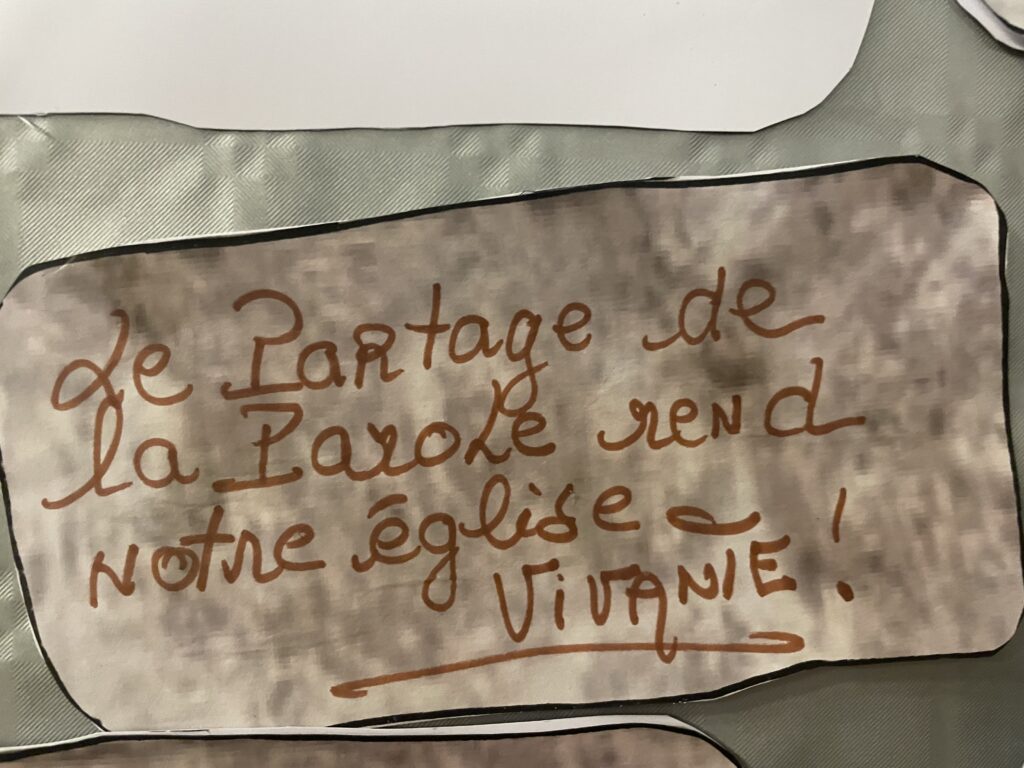 Le Partage de
la Parole rend
notre église
VIVANTE !